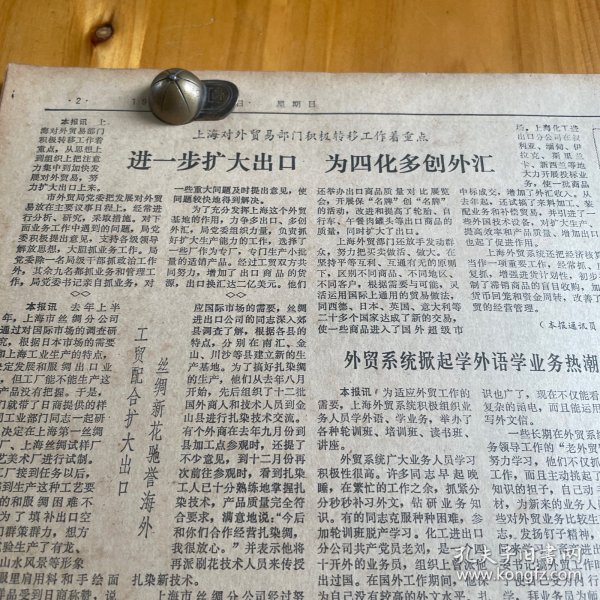 ·2·
日 星期日
上海对外贸易部门积极转移工作着重点
进一步扩大出口 为四化多创外汇
本报讯 上
海对外贸易部门
积极转移工作着
重点，从思想上
到组织上把注意
力集中到加快发
展对外贸易，努
力扩大出口上来。
市外贸局党委把发展对外贸
易放在主要议事日程上，经常进
行分析、研究，采取措施。对下
面业务工作中遇到的问题，局党
委积极提出意见，支持各级领导
解放思想，大胆抓业务工作。局
党委除一名局级干部抓政治工作
外，其余九名都抓业务和管理工
作，局党委书记亲自抓业务，对
一些重大问题及时提出意见，使
问题较快地得到解决。
为了充分发挥上海这个外贸
基地的作用，力争多出口、多创
外汇，局党委组织力量，负责抓
好扩大生产能力的工作，选择了
一些厂作为专厂，专门生产小批
量的适销产品，经过工贸双方共
同努力，增加了出口商品的货
源，出口换汇达二亿美元。他们
还举办出口商品质量对比展览
会，开展保“名牌”创“名牌”
的活动，改进和提高了轮胎、自
行车、午餐肉罐头等出口商品的
质量，同时扩大了出口。
上海外贸部门还放手发动群
众，努力把买卖做活、做大。在
坚持平等互利、互通有无的原则
下，区别不同商品、不同地区、
不同客户，根据需要与可能，灵
活运用国际上通用的贸易做法，
同西德、日本、英国、意大利等
二十多个国家达成了新的交易，
使一些商品进入了国外超级市
场。上海化工进
出口分公司在叙
利亚、缅甸、伊
拉克、斯里兰
卡、新西兰等地
大力开展投标业
务，使一批商品
中标成交，增加了外汇收入。去
年，还试搞了来料加工、装
配业务和补偿贸易，并引进了一
些外国技术设备，对扩大生产、
提高效率和产品质量、增加出口
也起了促进作用。
上海外贸系统还把经济核算
当作一项重要工作，经常抓，反
复抓，增强进货计划性，初步
制了滞销商品的盲目收购，加
货币回笼和资金周转，改善了
贸的经营管理。
（本报通讯员
丝绸新花驰誉海外
工贸配合扩大出口
本报讯 去年上半
年，上海市丝绸分公司
通过对国际市场的调查研
究，根据日本市场的需要
和上海工业生产的特点，
决定发展和服绸出口业
但工厂能不能生产这
产品没有把握。于是，
们就带了日商提供的样
到工业部门同志一起研
决定在上海第一丝绸
厂、上海丝绸试样厂
艺美术厂进行试制。
工厂接到任务以后，
到生产这种工艺要
的和服绸困难不
为了填补出口空
门群策群力，想方
试验生产了有龙、
山水风景等形象
服里肩用料和手绘面
品受到日商称赞，说
应国际市场的需要，丝绸
进出口公司的同志深入郊
县调查了解，根据各县的
特点，分别在南汇、金
山、川沙等县建立新的生
产基地。为了搞好扎染绸
的生产，他们从去年八月
开始，先后组织了十二批
国外商人和技术人员到金
山县进行扎染技术交流。
有个外商在去年九月份到
县加工点参观时，还提了
不少意见，到十二月份再
次前往参观时，看到扎染
工人已十分熟练地掌握扎
染技术，产品质量完全符
合要求，满意地说：“今后
和你们合作经营扎染绸，
我很放心。”并表示他将
再派刷花技术人员来传授
扎染新技术。
上海市丝绸分公司经过努
外贸系统掀起学外语学业务热潮
本报讯 为适应外贸工作的
需要，上海外贸系统积极组织业
务人员学外语、学业务，举办了
各种轮训班、培训班、读书班、
讲座。
上海外贸广大业务人员学习
积极性很高。许多同志早起晚
睡，在繁忙的工作之余，抓紧分
分秒秒补习外文，钻研业务知
识。有的同志克服种种困难，参
加轮训班脱产学习。化工进出口
分公司共产党员忠刘，是一
十开外的业务员，组织上曾派他
出过国。在国外工作期间，他深
为自己没有较高的外文水平，
识也广了，现在不仅能看
复杂的函电，而且能运用
写外文信。
一些长期在外贸系
务领导工作的“老外贸
努力学习，他们不仅抓
工作，而且主动挑起了
知识的担子，自己动手
材，为新来的业务人员
些对外贸业务比较生疏
志，发扬钉子精神，
教书记播外贸工作时间
学，拜业务员为师